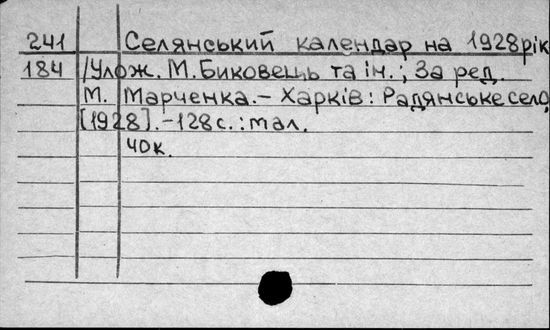 241 Селянський календар на 1928рік
184 /Улож. М. Биковець та ін.; За ред.
М. Марченка.- Харків: Радянське село,
[1928].-128с.:мал.
40к.